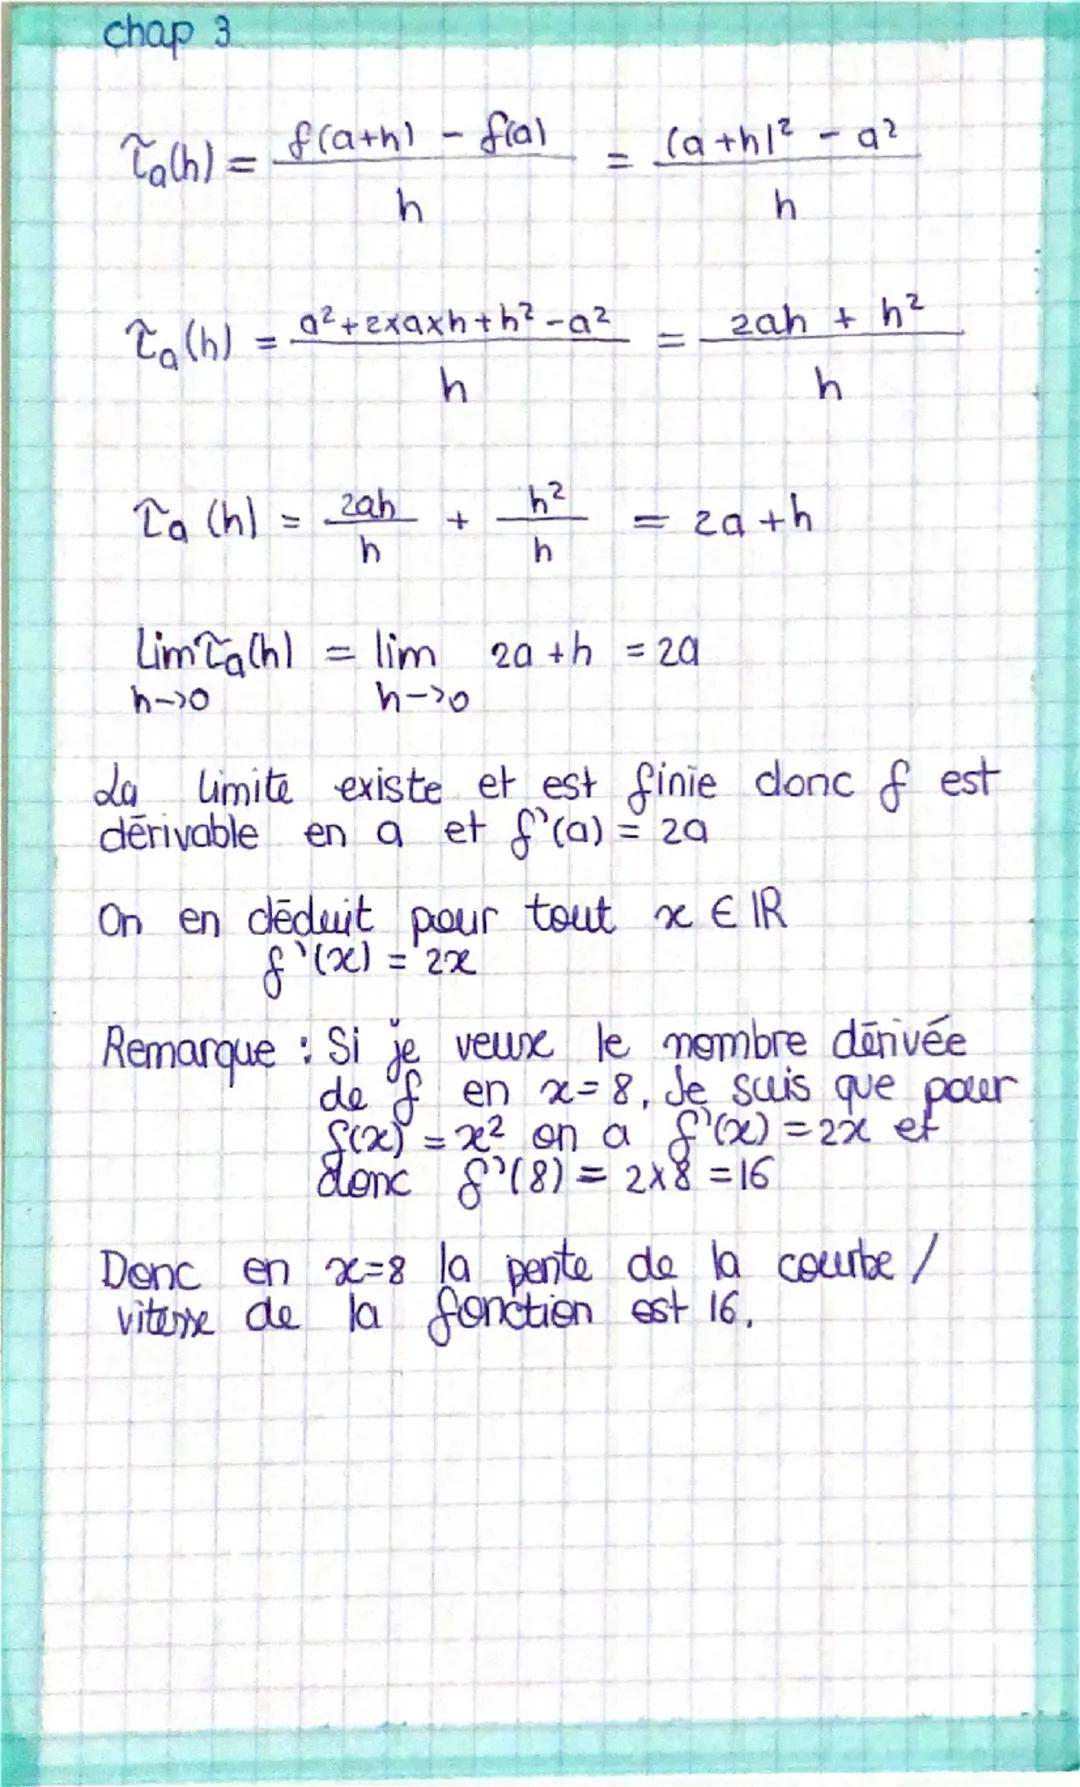 chap 3
τa(h) = f(a+h) - f(a) / h = (a+h)² - a² / h
τa(h) = a²+2xaxh+h²-a² / h = 2ah + h² / h
τa (h) = 2ah / h + h² / h = 2a+h
lim τa(h) = lim 2a+h = 2a
h->0 h->0
La limite existe et est finie donc f est
dérivable en a et f'(a) = 2a
On en déduit pour tout x ∈ ℝ
f'(x) = 2x
Remarque : Si je veux le nombre dérivée
de f en x=8, Je suis que pour
f(x) = x² on a f'(x) = 2x et
donc f'(8) = 2x8 = 16
Donc en x=8 la pente de la courbe /
vitesse de la fonction est 16.